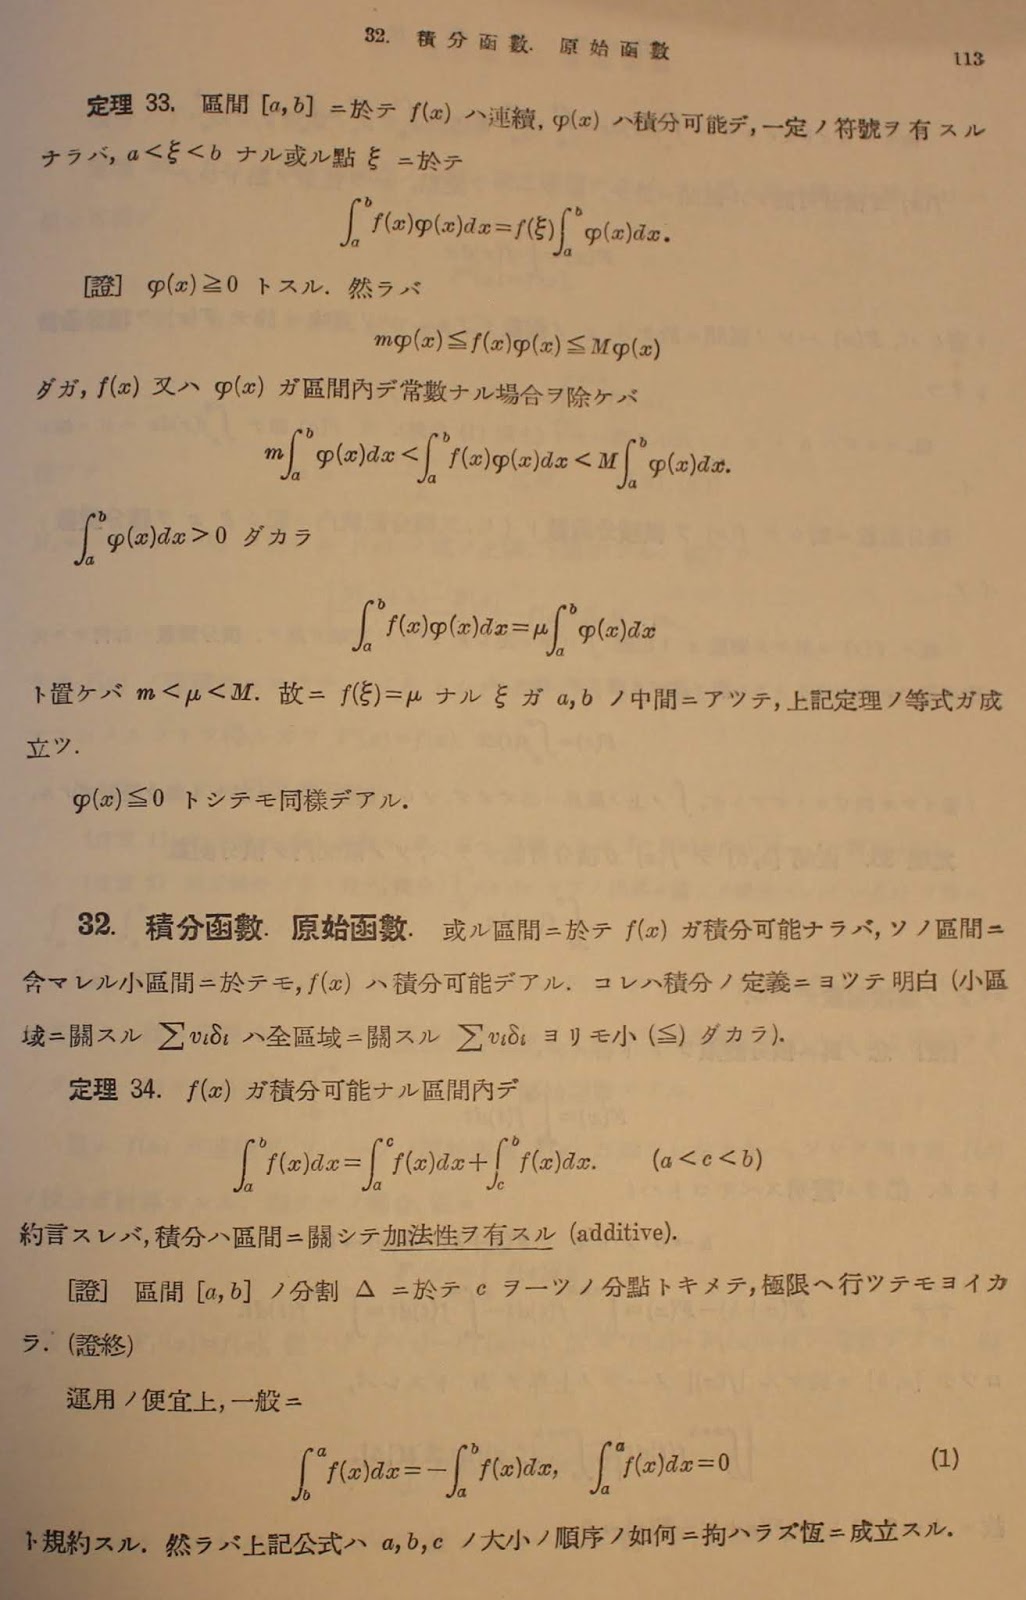 32. 積分函數. 原始函數
113
定理 33. 區間 [a, b] ニ於テ f(x) ハ連續, φ(x) ハ積分可能デ, 一定ノ符號ヲ有スル
ナラバ, a<ξ<b ナル或ル點 ξ ニ於テ
∫_a^b f(x)φ(x)dx=f(ξ)∫_a^b φ(x)dx.
[證] φ(x)≧0 トスル. 然ラバ
mφ(x)≦f(x)φ(x)≦Mφ(x)
ダガ, f(x) 又ハ φ(x) ガ區間內デ常數ナル場合ヲ除ケバ
m∫_a^b φ(x)dx<∫_a^b f(x)φ(x)dx<M∫_a^b φ(x)dx.
∫_a^b φ(x)dx>0 ダカラ
∫_a^b f(x)φ(x)dx=μ∫_a^b φ(x)dx
ト置ケバ m<μ<M. 故ニ f(ξ)=μ ナル ξ ガ a, b ノ中間ニアツテ, 上記定理ノ等式ガ成
立ツ.
φ(x)≦0 トシテモ同樣デアル.
32. 積分函數. 原始函數. 或ル區間ニ於テ f(x) ガ積分可能ナラバ, ソノ區間ニ
含マレル小區間ニ於テモ, f(x) ハ積分可能デアル. コレハ積分ノ定義ニヨツテ明白 (小區
域ニ關スル ∑v_iδ_i ハ全區域ニ關スル ∑v_iδ_i ヨリモ小 (≦) ダカラ).
定理 34. f(x) ガ積分可能ナル區間內デ
∫_a^b f(x)dx=∫_a^c f(x)dx+∫_c^b f(x)dx. (a<c<b)
約言スレバ, 積分ハ區間ニ關シテ加法性ヲ有スル (additive).
[證] 區間 [a, b] ノ分割 Δ ニ於テ c ヲ一ツノ分點トキメテ, 極限ヘ行ツテモヨイカ
ラ. (證終)
運用ノ便宜上, 一般ニ
∫_b^a f(x)dx=−∫_a^b f(x)dx, ∫_a^a f(x)dx=0 (1)
ト規約スル. 然ラバ上記公式ハ a, b, c ノ大小ノ順序ノ如何ニ拘ハラズ恆ニ成立スル.